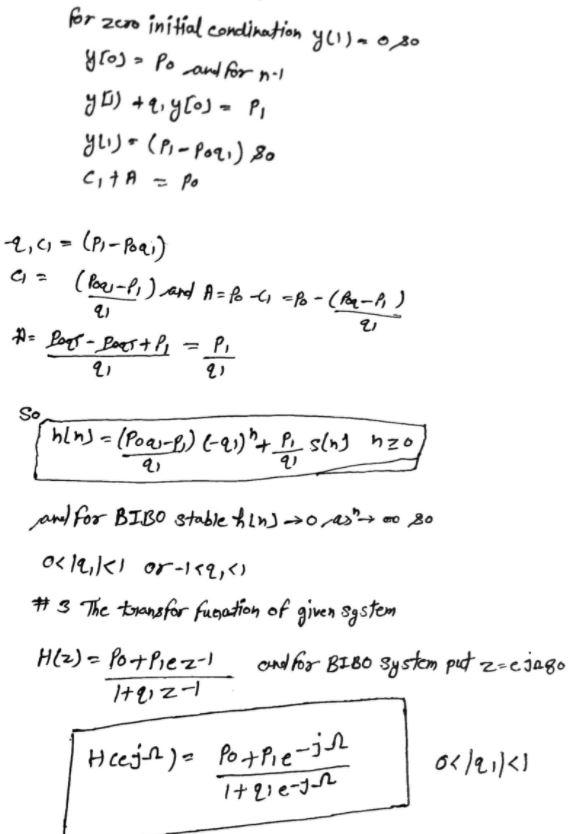 for zero initial condination y(1) = 0, so
y[0] = P0 and for n-1
y[1) + q1 y[0] = P1
y[1] = (P1 - P0q1) so
C1 + A = P0
-q1C1 = (P1 - P0q1)
C1 = (P0q1 - P1)/q1 and A = P0 - C1 = P0 - (P0q - P1)/q1
A = (P0q1 - P0q1 + P1)/q1 = P1/q1
So
h[n] = (P0q1 - P1)/q1 (-q1)^n + P1/q1 s[n] n≥0
and for BIBO stable h[n] → 0, as n → ∞ so
0<|q1|<1 or -1<q1<1
# 3 The transfor funation of given system
H(z) = (P0 + P1ez-1)/(1 + q1z-1) and for BIBO system put z = ejΩ so
H(ejΩ) = (P0 + P1e-jΩ)/(1 + q1e-jΩ) 0<|q1|<1